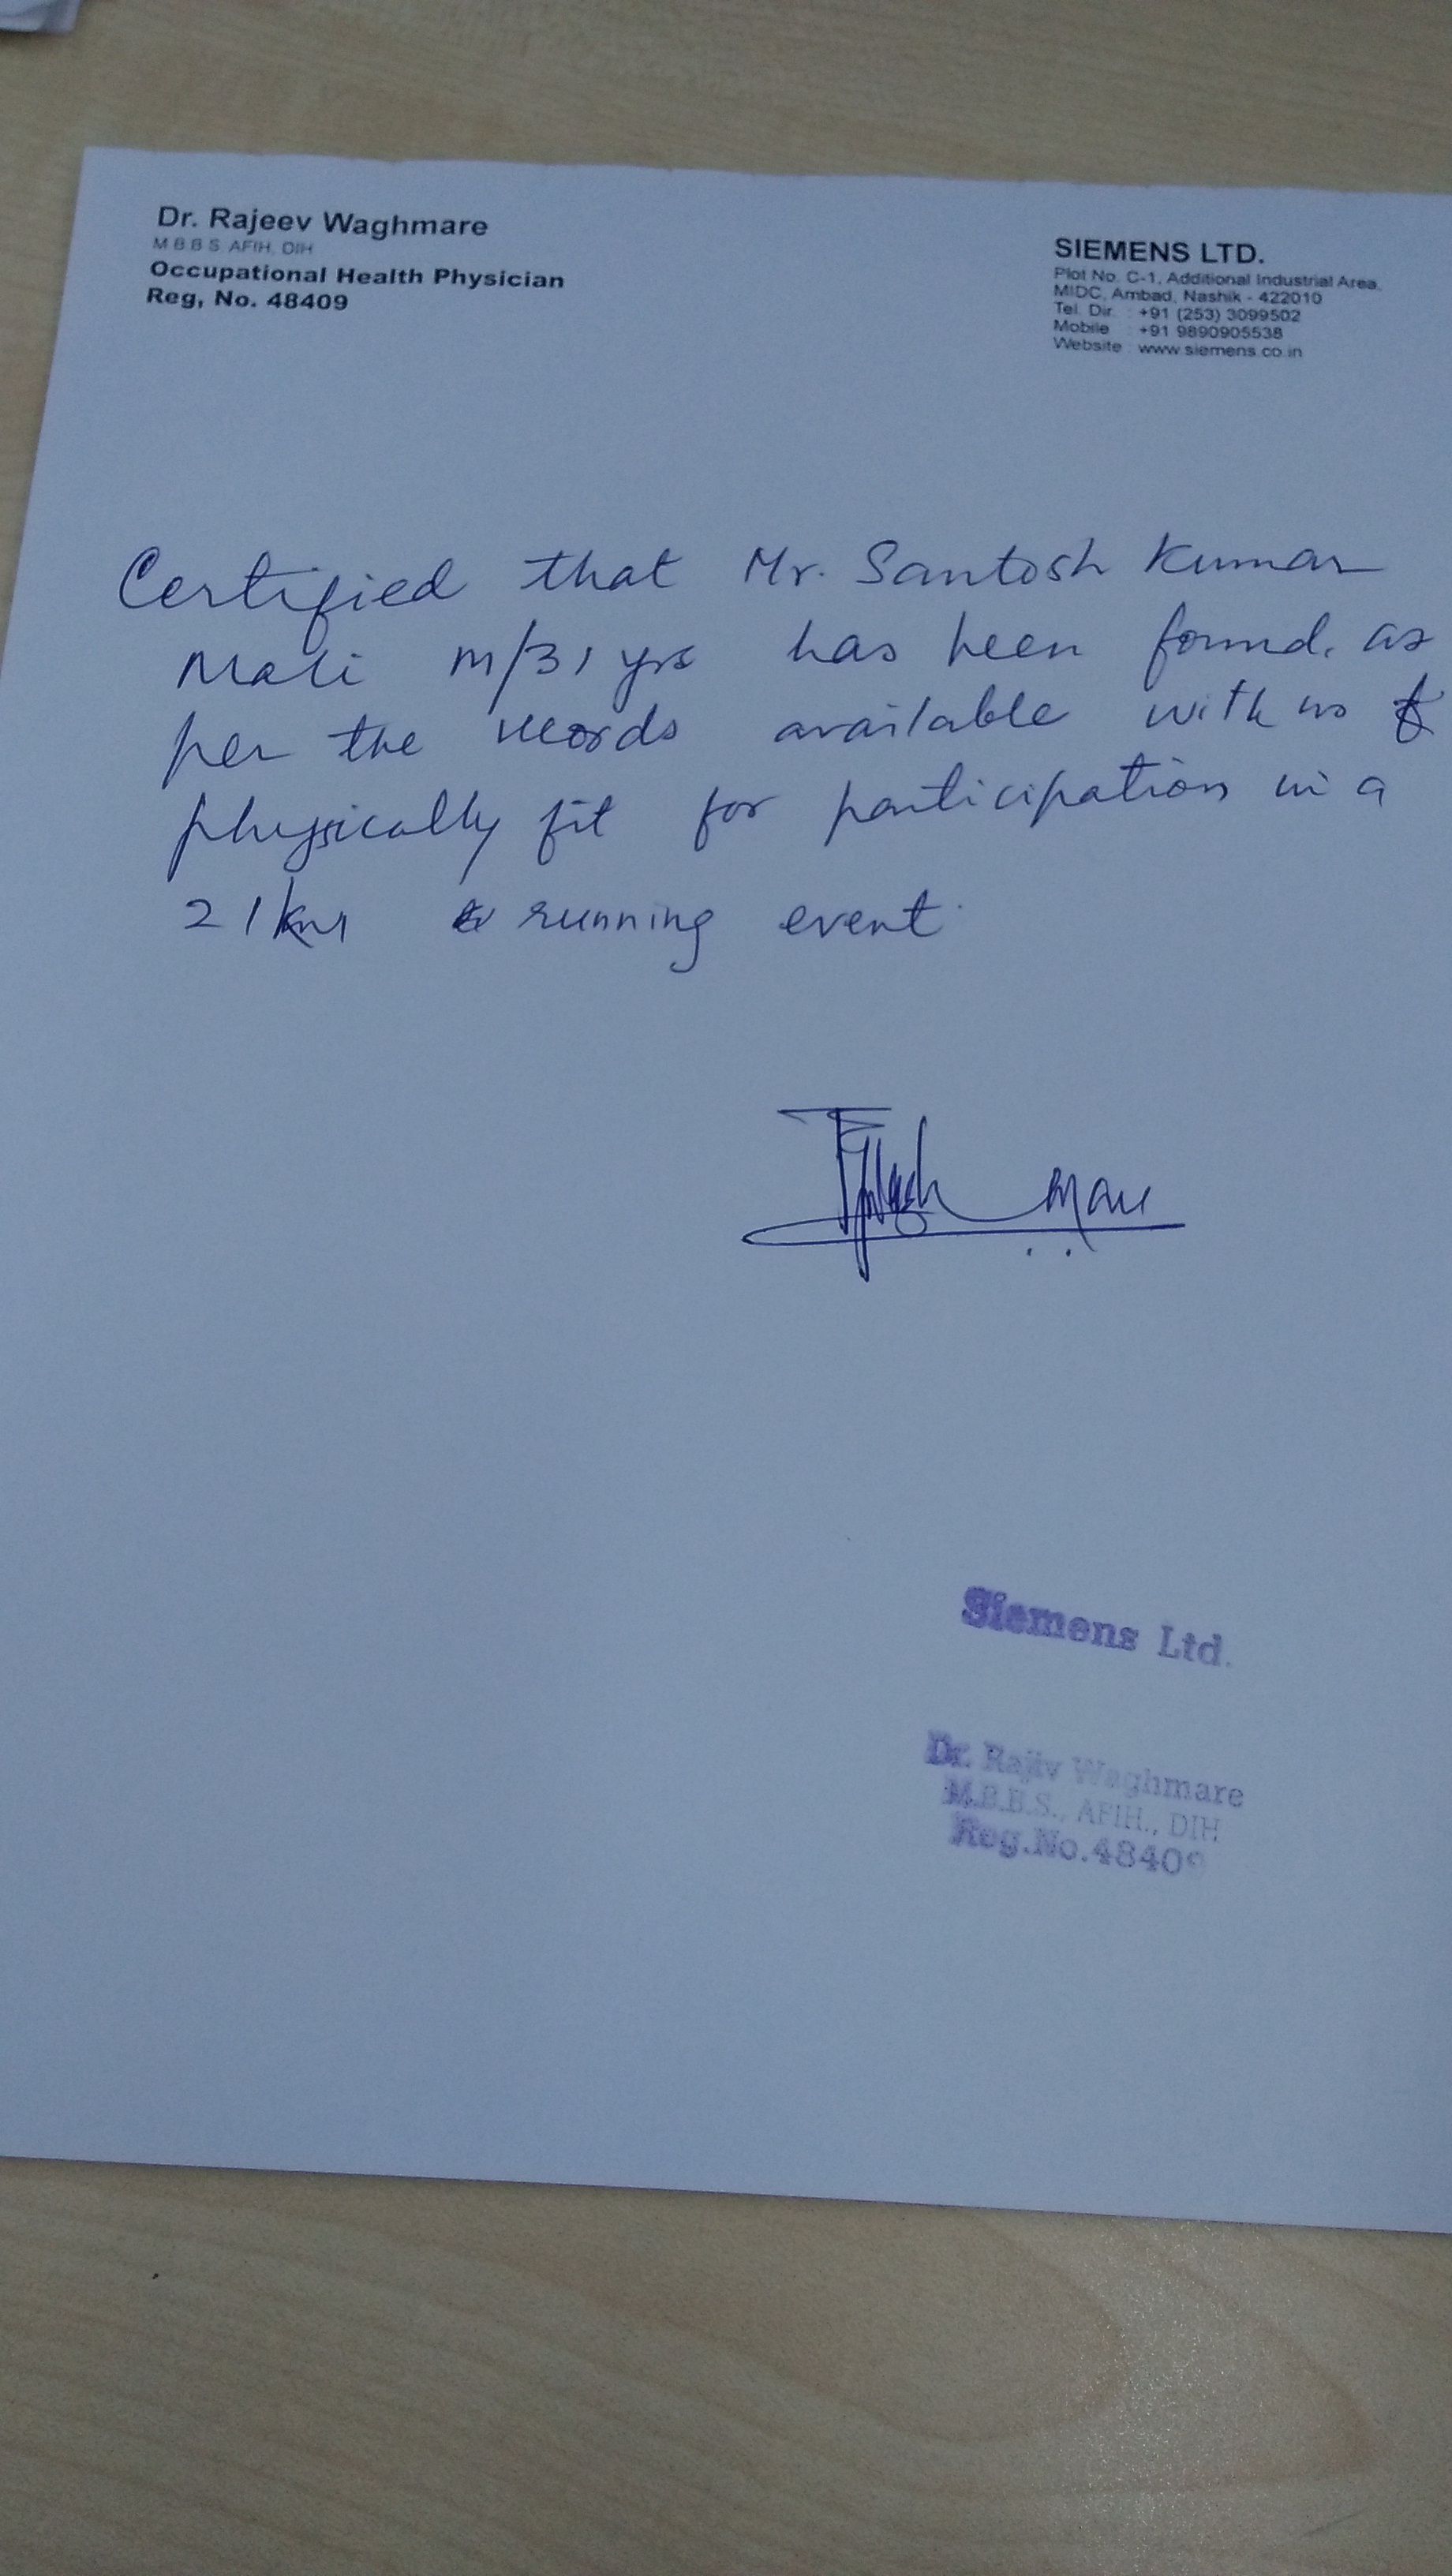 Dr. Rajeev Waghmare
M B B S AFIH, DIH
Occupational Health Physician
Reg, No. 48409
SIEMENS LTD.
Plot No. C-1, Additional Industrial Area,
MIDC, Ambad, Nashik - 422010
Tel. Dir. : +91 (253) 3099502
Mobile : +91 9890905538
Website : www.siemens.co.in
Certified that Mr. Santosh Kumar
Mali m/31 yrs has been found, as
per the records available with us
physically fit for participation in a
21km running event.
Siemens Ltd.
Dr. Rajiv Waghmare
M.B.B.S., AFIH., DIH
Reg.No.48409